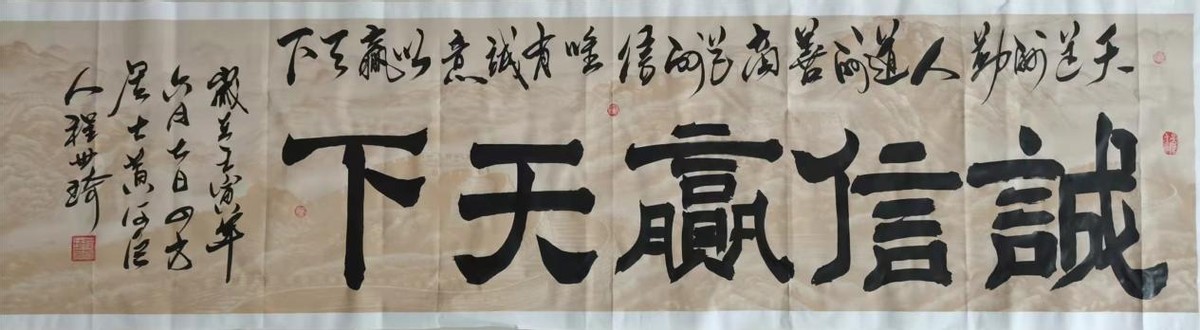 天道酬勤人道酬善商道酬信唯有誠意以贏天下
誠信贏天下
歲在壬寅年
六月七日四方
居士黄河
人程世琦